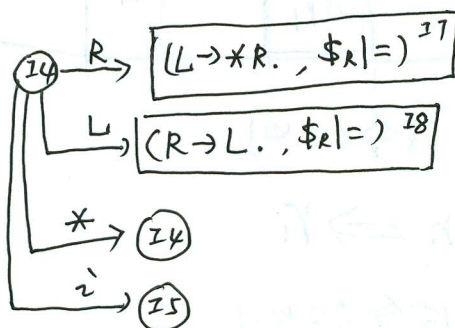 I4 R (L→*R. , $R|=) I7
L (R→L. , $R|=) I8
* I4
i I5